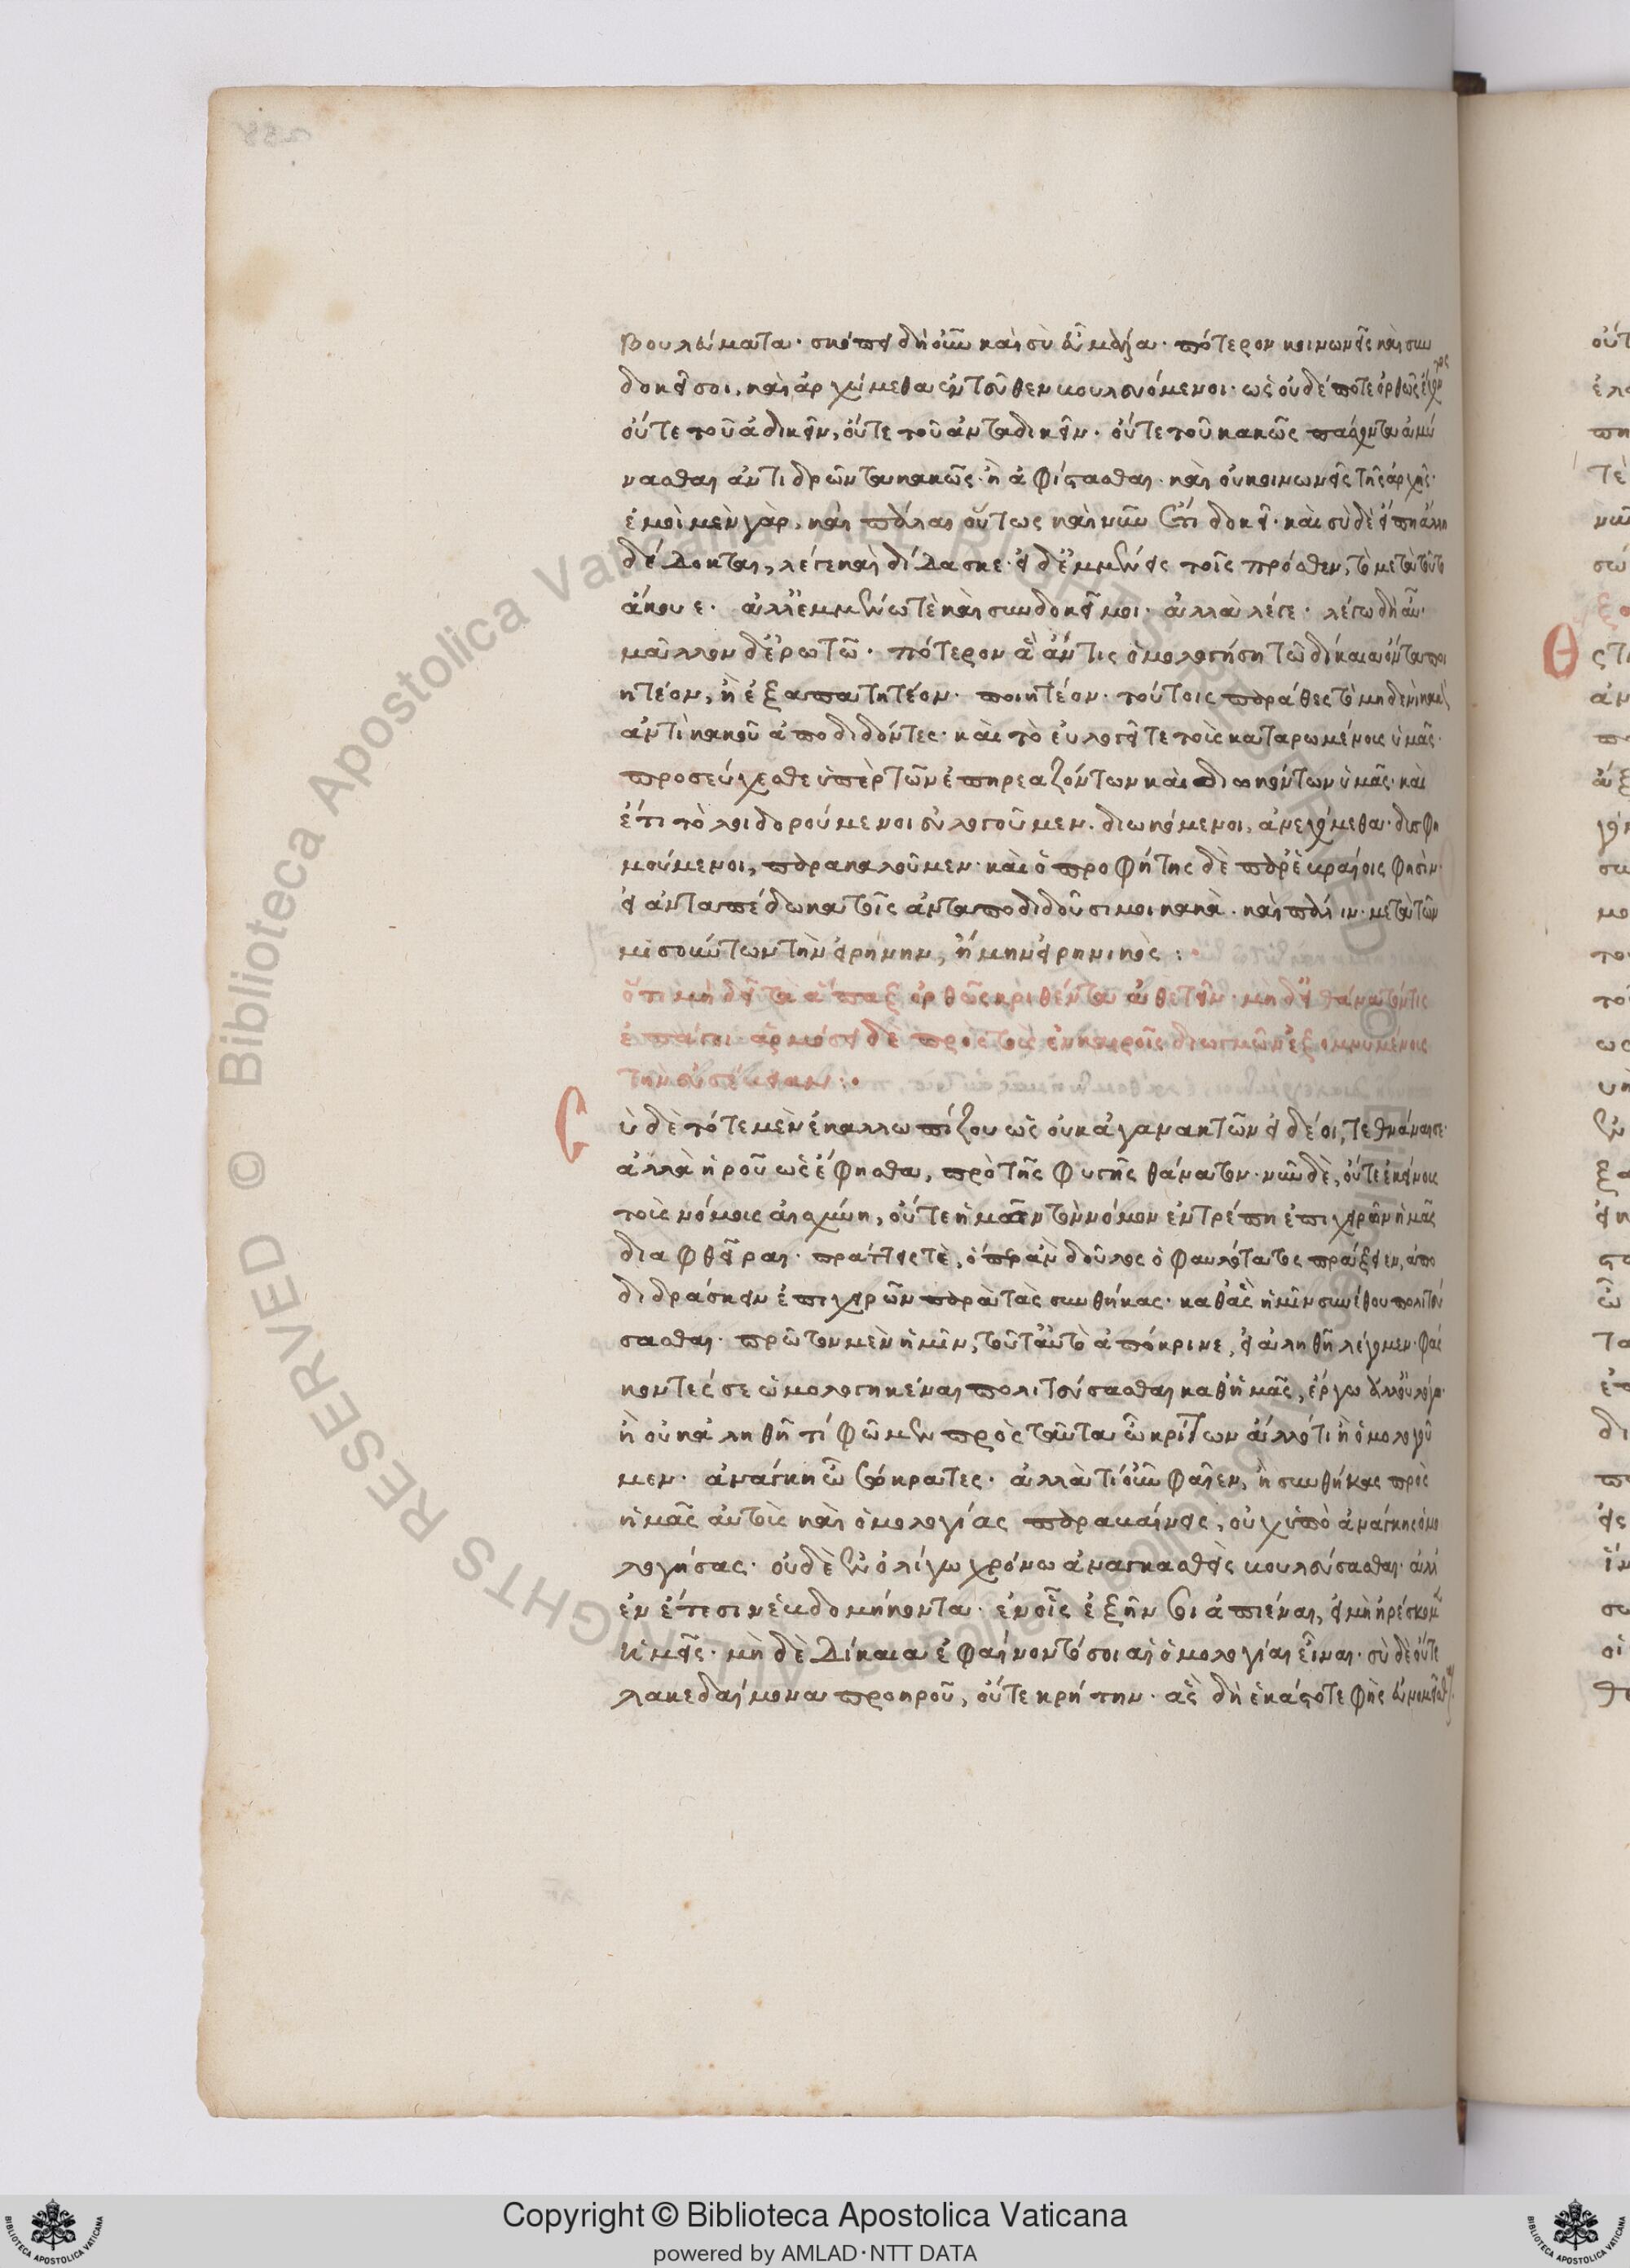 βουλεύματα· σκόπει δὴ οὖν καὶ σὺ εὖ μάλα· πότερον κοινωνεῖς καὶ συν
δοκεῖ σοι. καὶ ἀρχώμεθα ἐντεῦθεν βουλευόμενοι· ὡς οὐδέποτε ὀρθῶς ἔχοντος
οὔτε τοῦ ἀδικεῖν, οὔτε τοῦ ἀνταδικεῖν· οὔτε τοῦ κακῶς πάσχοντα ἀμύ
νασθαι ἀντιδρῶντα κακῶς· ἢ ἀφίστασθαι. καὶ οὐ κοινωνεῖς τῆς ἀρχῆς·
ἐμοὶ μὲν γὰρ. καὶ πάλαι οὕτως καὶ νῦν ἔτι δοκεῖ· καὶ σὺ δὲ εἴ πη ἄλλη
δέδοκται, λέγε καὶ δίδασκε· εἰ δ' ἐμμένεις τοῖς πρόσθεν, τὸ μετὰ τοῦτο
ἄκουε· ἀλλ' ἐμμένω τὲ καὶ συνδοκεῖ μοι· ἀλλὰ λέγε· λέγω δὴ αὖ·
μᾶλλον δ' ἐρωτῶ· πότερον ἃ ἄν τις ὁμολογήσῃ τῶ δίκαια ὄντα ποι
ητέον, ἢ ἐξαπατητέον· ποιητέον· τούτοις παράθες τὸ μηδενὶ κακὸν
ἀντὶ κακοῦ ἀποδιδόντες· καὶ τὸ εὐλογεῖτε τοὺς καταρωμένους ὑμᾶς·
προσεύχεσθε ὑπὲρ τῶν ἐπηρεαζόντων καὶ διωκόντων ὑμᾶς· καὶ
ἔτι τὸ λοιδορούμενοι εὐλογοῦμεν. διωκόμενοι, ἀνεχόμεθα· δυσφη
μούμενοι, παρακαλοῦμεν· καὶ ὁ προφήτης δὲ παρ' ἑβραίοις φησὶν·
εἰ ἀνταπέδωκα τοῖς ἀνταποδιδοῦσι μοι κακὰ. καὶ πάλιν· μετὰ τῶν
μισούντων τὴν εἰρήνην, ἤμην εἰρηνικός:
ὅτι μὴ δεῖ τὰ ἅπαξ ὀρθῶς κριθέντα ἀθετεῖν· μηδ' εἰ θάνατόν τις
ἐπάγοι· ἁρμόσει δὲ πρὸς τοὺς ἐν καιροῖς διωγμῶν ἐξομνυμένους
τὴν εὐσέβειαν:
Σὺ δὲ τότε μὲν ἐκαλλωπίζου ὡς οὐκ ἀγανακτῶν εἰ δέοι, τεθνάναι σε·
ἀλλὰ ἡροῦ ὡς ἔφησθα, πρὸ τῆς φυγῆς θάνατον· νῦν δὲ, οὔτε ἐκείνους
τοὺς νόμους αἰσχύνη, οὔτε ἡμῶν τῶν νόμων ἐντρέπῃ ἐπιχειρῶν ἡμᾶς
διαφθεῖραι· πράττεις τὲ, ὅπερ ἂν δοῦλος ὁ φαυλότατος πράξειεν, ἀπο
διδράσκειν ἐπιχειρῶν παρὰ τὰς συνθήκας· καθ' ἃς ἡμῖν συνέθου πολιτεύ
σασθαι· πρῶτον μὲν ἡμῖν, τοῦτ' αὐτὸ ἀπόκριναι, εἰ ἀληθῆ λέγομεν· φάσ
κοντές σε ὡμολογηκέναι πολιτεύσασθαι καθ' ἡμᾶς, ἔργω ἀλλ' οὐ λόγω·
ἢ οὐκ ἀληθῆ τί φῶμεν πρὸς ταῦτα ὦ κρίτων ἄλλό τι ἢ ὁμολογῶ
μεν· ἀνάγκη ὦ σώκρατες· ἀλλὰ τί οὖν φαῖεν, ἢ συνθήκας πρὸς
ἡμᾶς αὐτοὺς καὶ ὁμολογίας παραβαίνεις, οὐχ ὑπὸ ἀνάγκης ὁμο
λογήσας· οὐδὲ ἐν ὀλίγω χρόνω ἀναγκασθεὶς βουλεύσασθαι· ἀλλ'
ἐν ἔτεσιν ἑβδομήκοντα· ἐν οἷς ἐξῆν σοι ἀπιέναι, εἰ μὴ ἠρέσκομεν
ἡμεῖς· μὴ δὲ δίκαια ἐφαίνοντό σοι αἱ ὁμολογίαι εἶναι· σὺ δὲ οὔτε
λακεδαίμονα προηροῦ, οὔτε κρήτην· ἃς δὴ ἑκάστοτε φὴς εὐνομεῖσθαι·
Copyright © Biblioteca Apostolica Vaticana
powered by AMLAD·NTT DATA